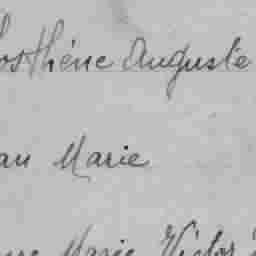 osthène Auguste
an Marie
Marie Victor